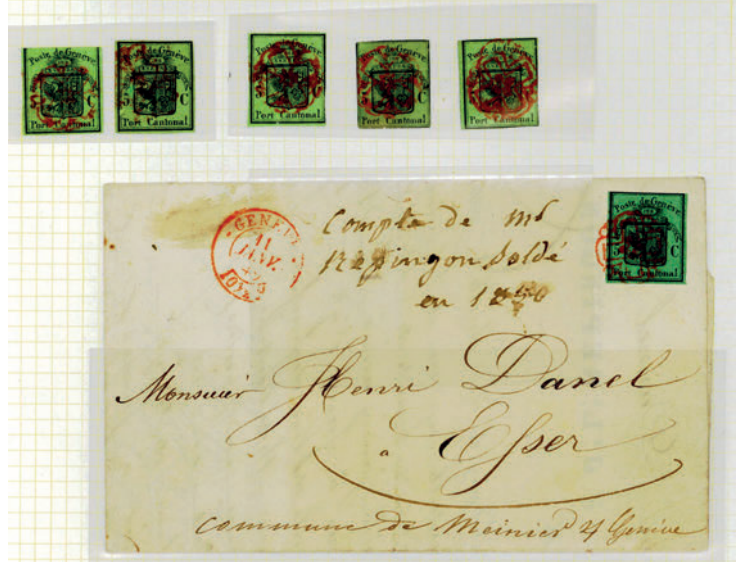 Poste de Genève
5 C
Port Cantonal
Poste de Genève
5 C
Port Cantonal
Poste de Genève
5 C
Port Cantonal
Poste de Genève
5 C
Port Cantonal
Poste de Genève
5 C
Port Cantonal
GENÈVE
11
JANV.
Compte de Mr
soldé
en 1850
Poste de Genève
5 C
Port Cantonal
Monsieur Henri Danel
a Esser
Commune de Meinier Genève